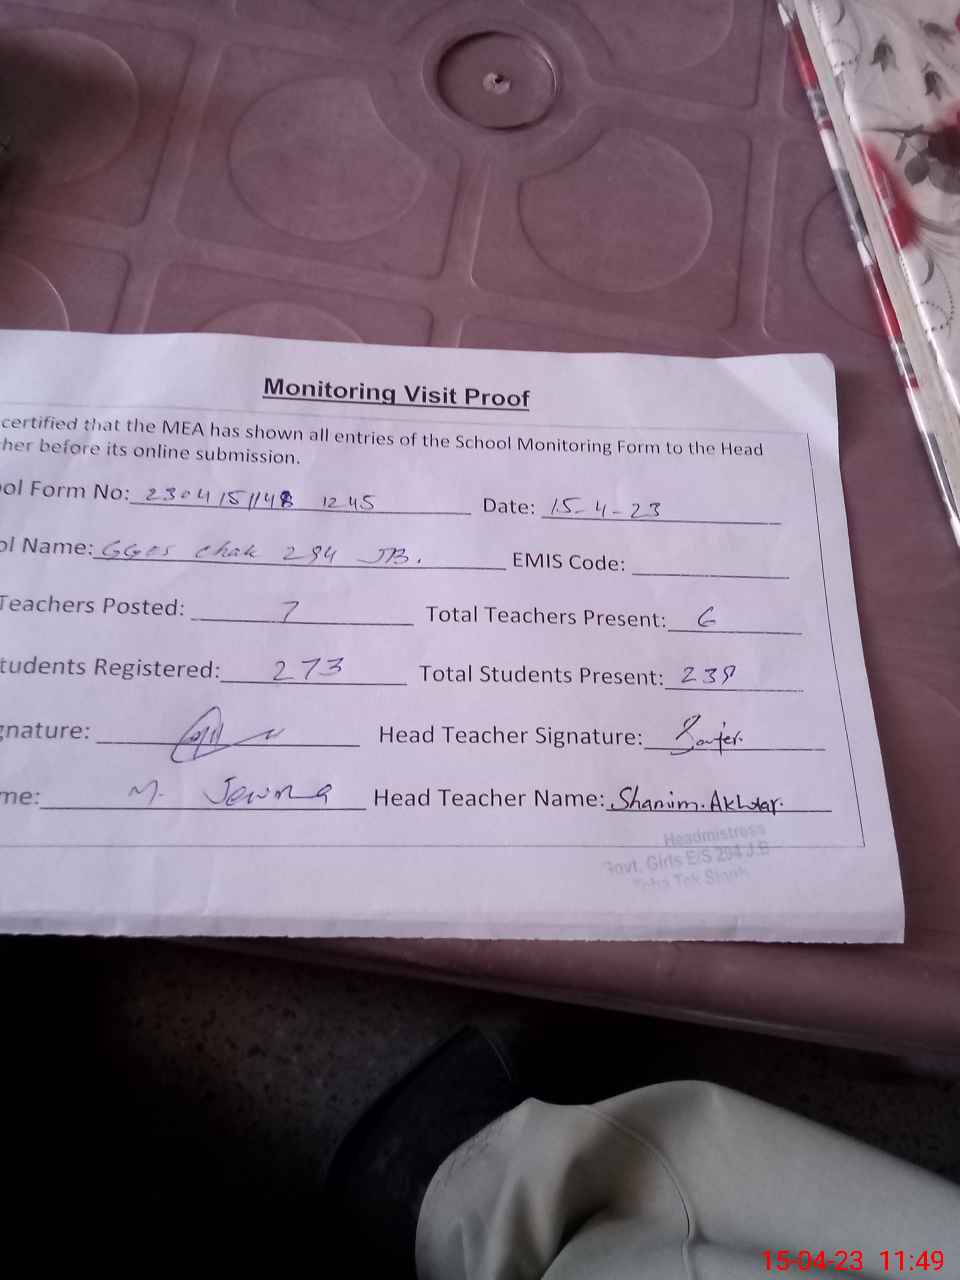 Monitoring Visit Proof
certified that the MEA has shown all entries of the School Monitoring Form to the Head
her before its online submission.
ol Form No: 2304151148 1245 Date: 15-4-23
ol Name: GGES Chak 294 JB. EMIS Code:
Teachers Posted: 7 Total Teachers Present: 6
tudents Registered: 273 Total Students Present: 238
gnature: Head Teacher Signature:
me: M. Head Teacher Name: Shamim. Akhtar.
Headmistress
Govt. Girls E/S 294 J.B
Toba Tek Singh
15-04-23 11:49